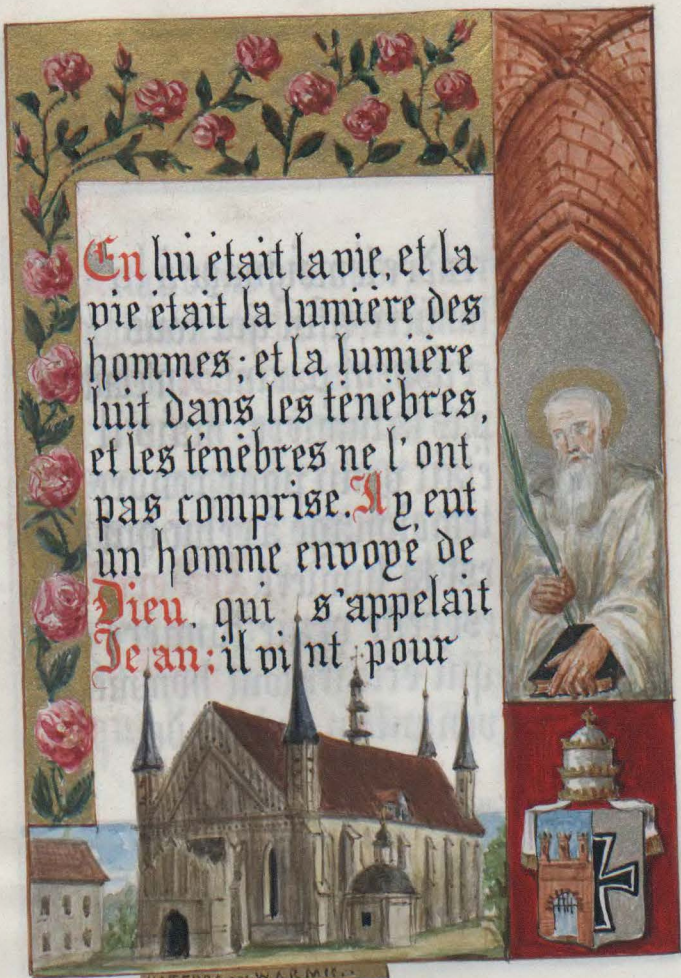 En lui était la vie, et la
vie était la lumière des
hommes; et la lumière
luit dans les ténèbres,
et les ténèbres ne l'ont
pas comprise. Il y eut
un homme envoyé de
Dieu, qui s'appelait
Jean; il vint pour